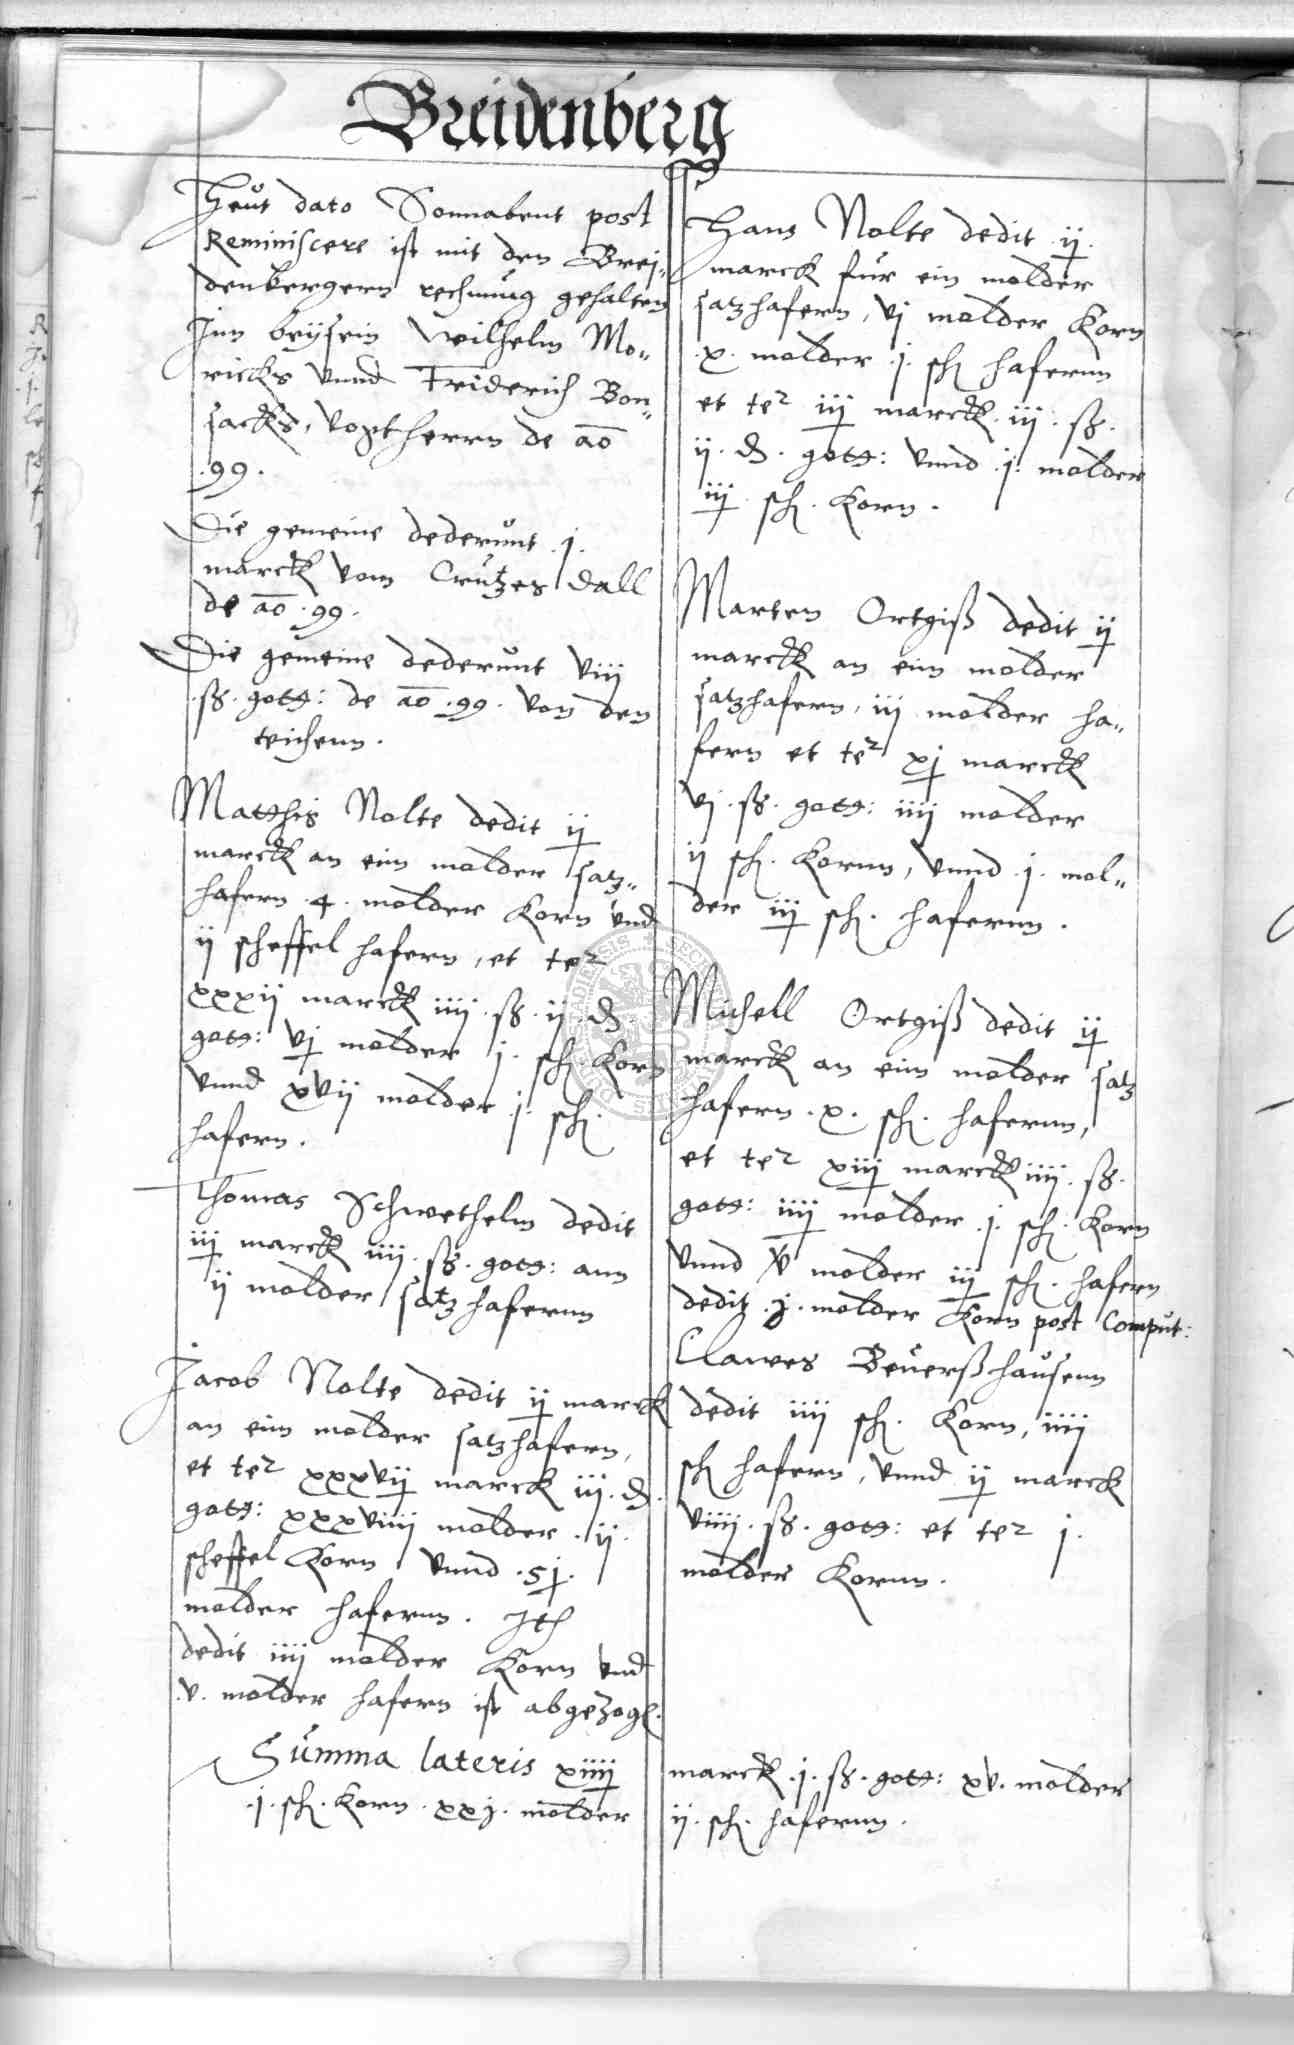 Breidenberg
Heut dato Sonnabent post
Reminiscere ist mit den Brei„
denbergern rechnung gehalten
Inn beysein Wilhelm Mo„
ricks vnnd Friderich Bon„
sacks, Voxtherrn de ao
.99.
Die gemeine dederunt .j.
marck vom Crutzes dall
de ao .99.
Die gemeine dederunt viij
.ß. gott: de ao .99. von den
teichenn.
Matthis Nolte dedit ij
marck an ein molder satz„
hafern .4. molder Korn vnd
ij scheffel hafern, et ter
xxxij marck iiij .ß. ij .d.
gott: vj molder j. sch. Korn
vnnd xvij molder j. sch.
hafern.
Thomas Schwethelm dedit
iij marck iiij .ß. gott: ann
ij molder satzhafernn
Jacob Nolte dedit ij marck
an ein molder satzhafern,
et ter xxxvij marck iij .d.
gott: xxxviiij molder .ij.
scheffel Korn vnnd .5j.
molder hafernn. Ite
dedit iiij molder Korn vnd
.v. molder hafern ist abgezogen.
Summa lateris xiiij
.j. sch. Korn .xxj. molder
Hans Nolte dedit ij.
marck fur ein molder
satzhafern, vj molder Korn
.x. molder .j. sch hafernn
et ter iij marck .iij. ß.
ij .d. gott: vnnd .j. molder
iij sch. Korn.
Marten Ortgiß dedit ij
marck an ein molder
satzhafern, iij molder ha„
fern et ter xj marck
vj .ß. gott: iiij molder
ij sch. Kornn, vnnd .j. mol„
der iij sch. hafernn.
Michell Ortgiß dedit ij
marck an ein molder satz
hafern .x. sch. hafernn,
et ter xiij marck iiij .ß.
gott: iiij molder .j. sch. Korn
vnnd v molder iij sch. hafern
dedit .j. molder Korn post Comput:
Clawes Beuerßhausenn
dedit iiij sch. Korn, iiij
sch hafern, vnnd ij marck
viiij .ß. gott: et ter j.
molder Kornn.
marck .j. ß. gott: xv. molder
ij. sch. hafernn.